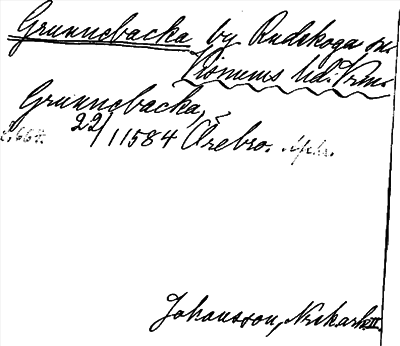 Grunnebacka by Rudskoga sn
Visnums hd. Vrml.
Grunnebacka,
22/1 1584 Örebro.
Johansson, Nrkarkiv